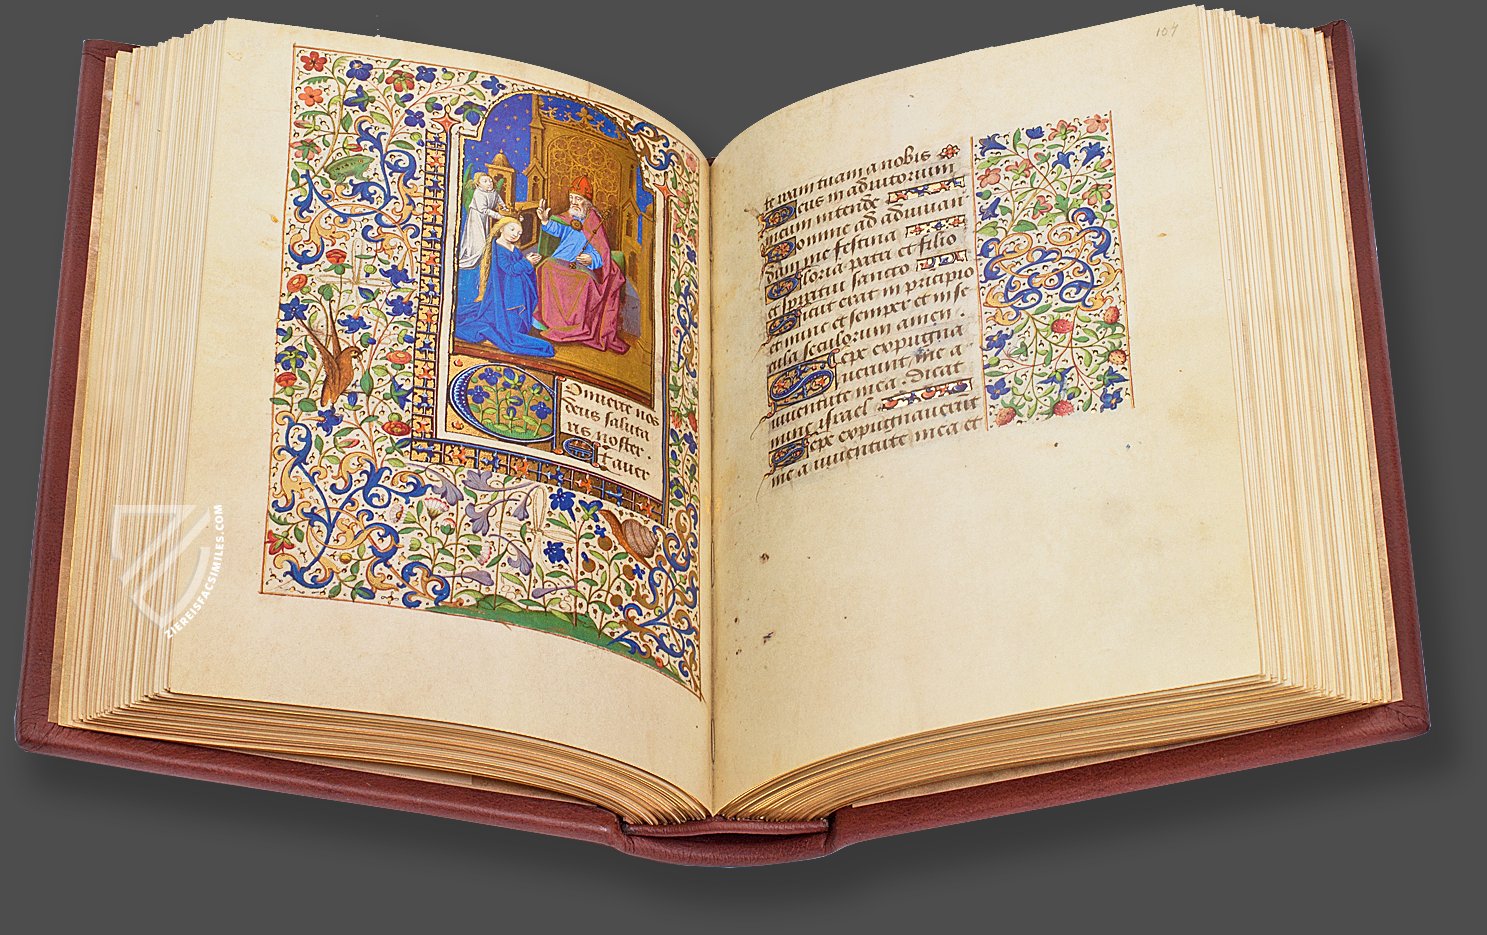 Onuerte nos
deus saluta
ris noster.
Et auer
107
te iram tuam a nobis
Deus in adiutorium
meum intende
Domine ad adiuuan
dum me festina
Gloria patri et filio
et spiritui sancto
Sicut erat in principio
et nunc et semper et in se
cula seculorum amen.
Sepe expugna
uerunt me a
iuuentute mea. dicat
nunc israel
Sepe expugnauerunt
me a iuuentute mea et
ZIEREISFACSIMILES.COM